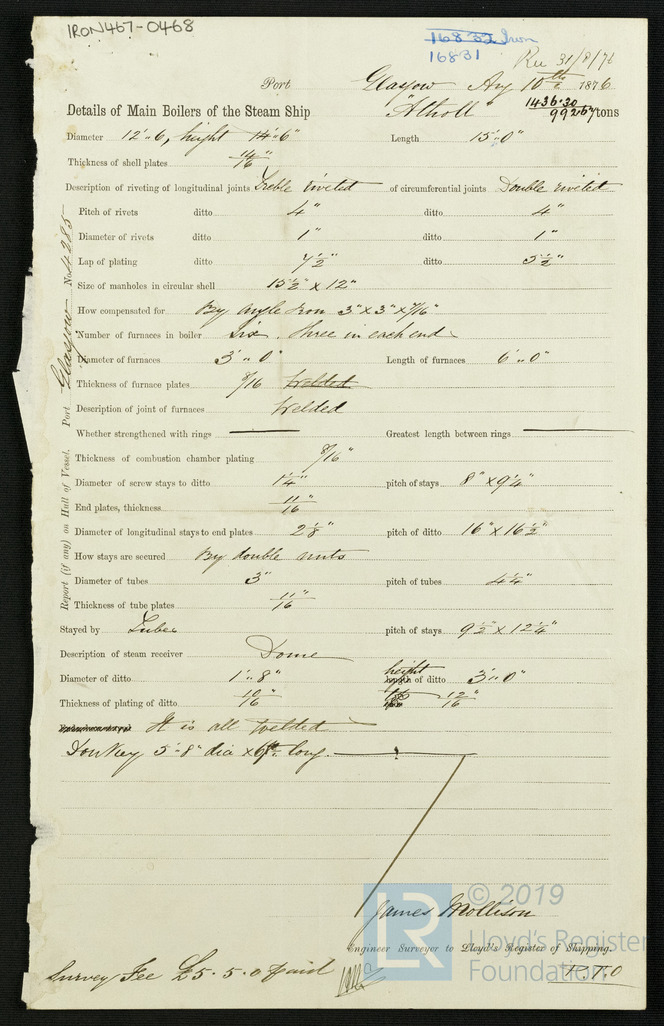 IRON467-0468
16832 Iron
16831
Rec 31/8/76
Port Glasgow Aug 10th 1876
Details of Main Boilers of the Steam Ship "Atholl" 1436.30 992.67 tons
Diameter 12'.. 6, height 14'.. 6" Length 15'.. 0"
Thickness of shell plates 14/16"
Description of riveting of longitudinal joints Treble riveted of circumferential joints Double riveted
Pitch of rivets ditto 4" ditto 4"
Diameter of rivets ditto 1" ditto 1"
Lap of plating ditto 7½" ditto 5½"
Size of manholes in circular shell 15½" x 12"
How compensated for By angle Iron 3" x 3" x 7/16"
Number of furnaces in boiler Six, three in each end
Diameter of furnaces 3'.. 0" Length of furnaces 6'.. 0"
Thickness of furnace plates 8/16 welded
Description of joint of furnaces welded
Whether strengthened with rings Greatest length between rings
Thickness of combustion chamber plating 8/16"
Diameter of screw stays to ditto 1¼" pitch of stays 8" x 9¼"
End plates, thickness 11/16"
Diameter of longitudinal stays to end plates 2⅛" pitch of ditto 16" x 16½"
How stays are secured By double nuts
Diameter of tubes 3" pitch of tubes 4¼"
Thickness of tube plates 11/16"
Stayed by Tubes pitch of stays 9½ x 12¼"
Description of steam receiver Dome
Diameter of ditto 1'.. 8" height length of ditto 3'.. 0"
Thickness of plating of ditto 10/16" 12/16"
It is all welded
Donkey 5'-8" dia x long.
James Mollison
Engineer Surveyor to Lloyd's Register of Shipping.
Survey Fee £5.5.0 paid
P.T.O
Report (if any) on Hull of Vessel. Port Glasgow No. 4285
LR © 2019
Lloyd's Register
Foundation